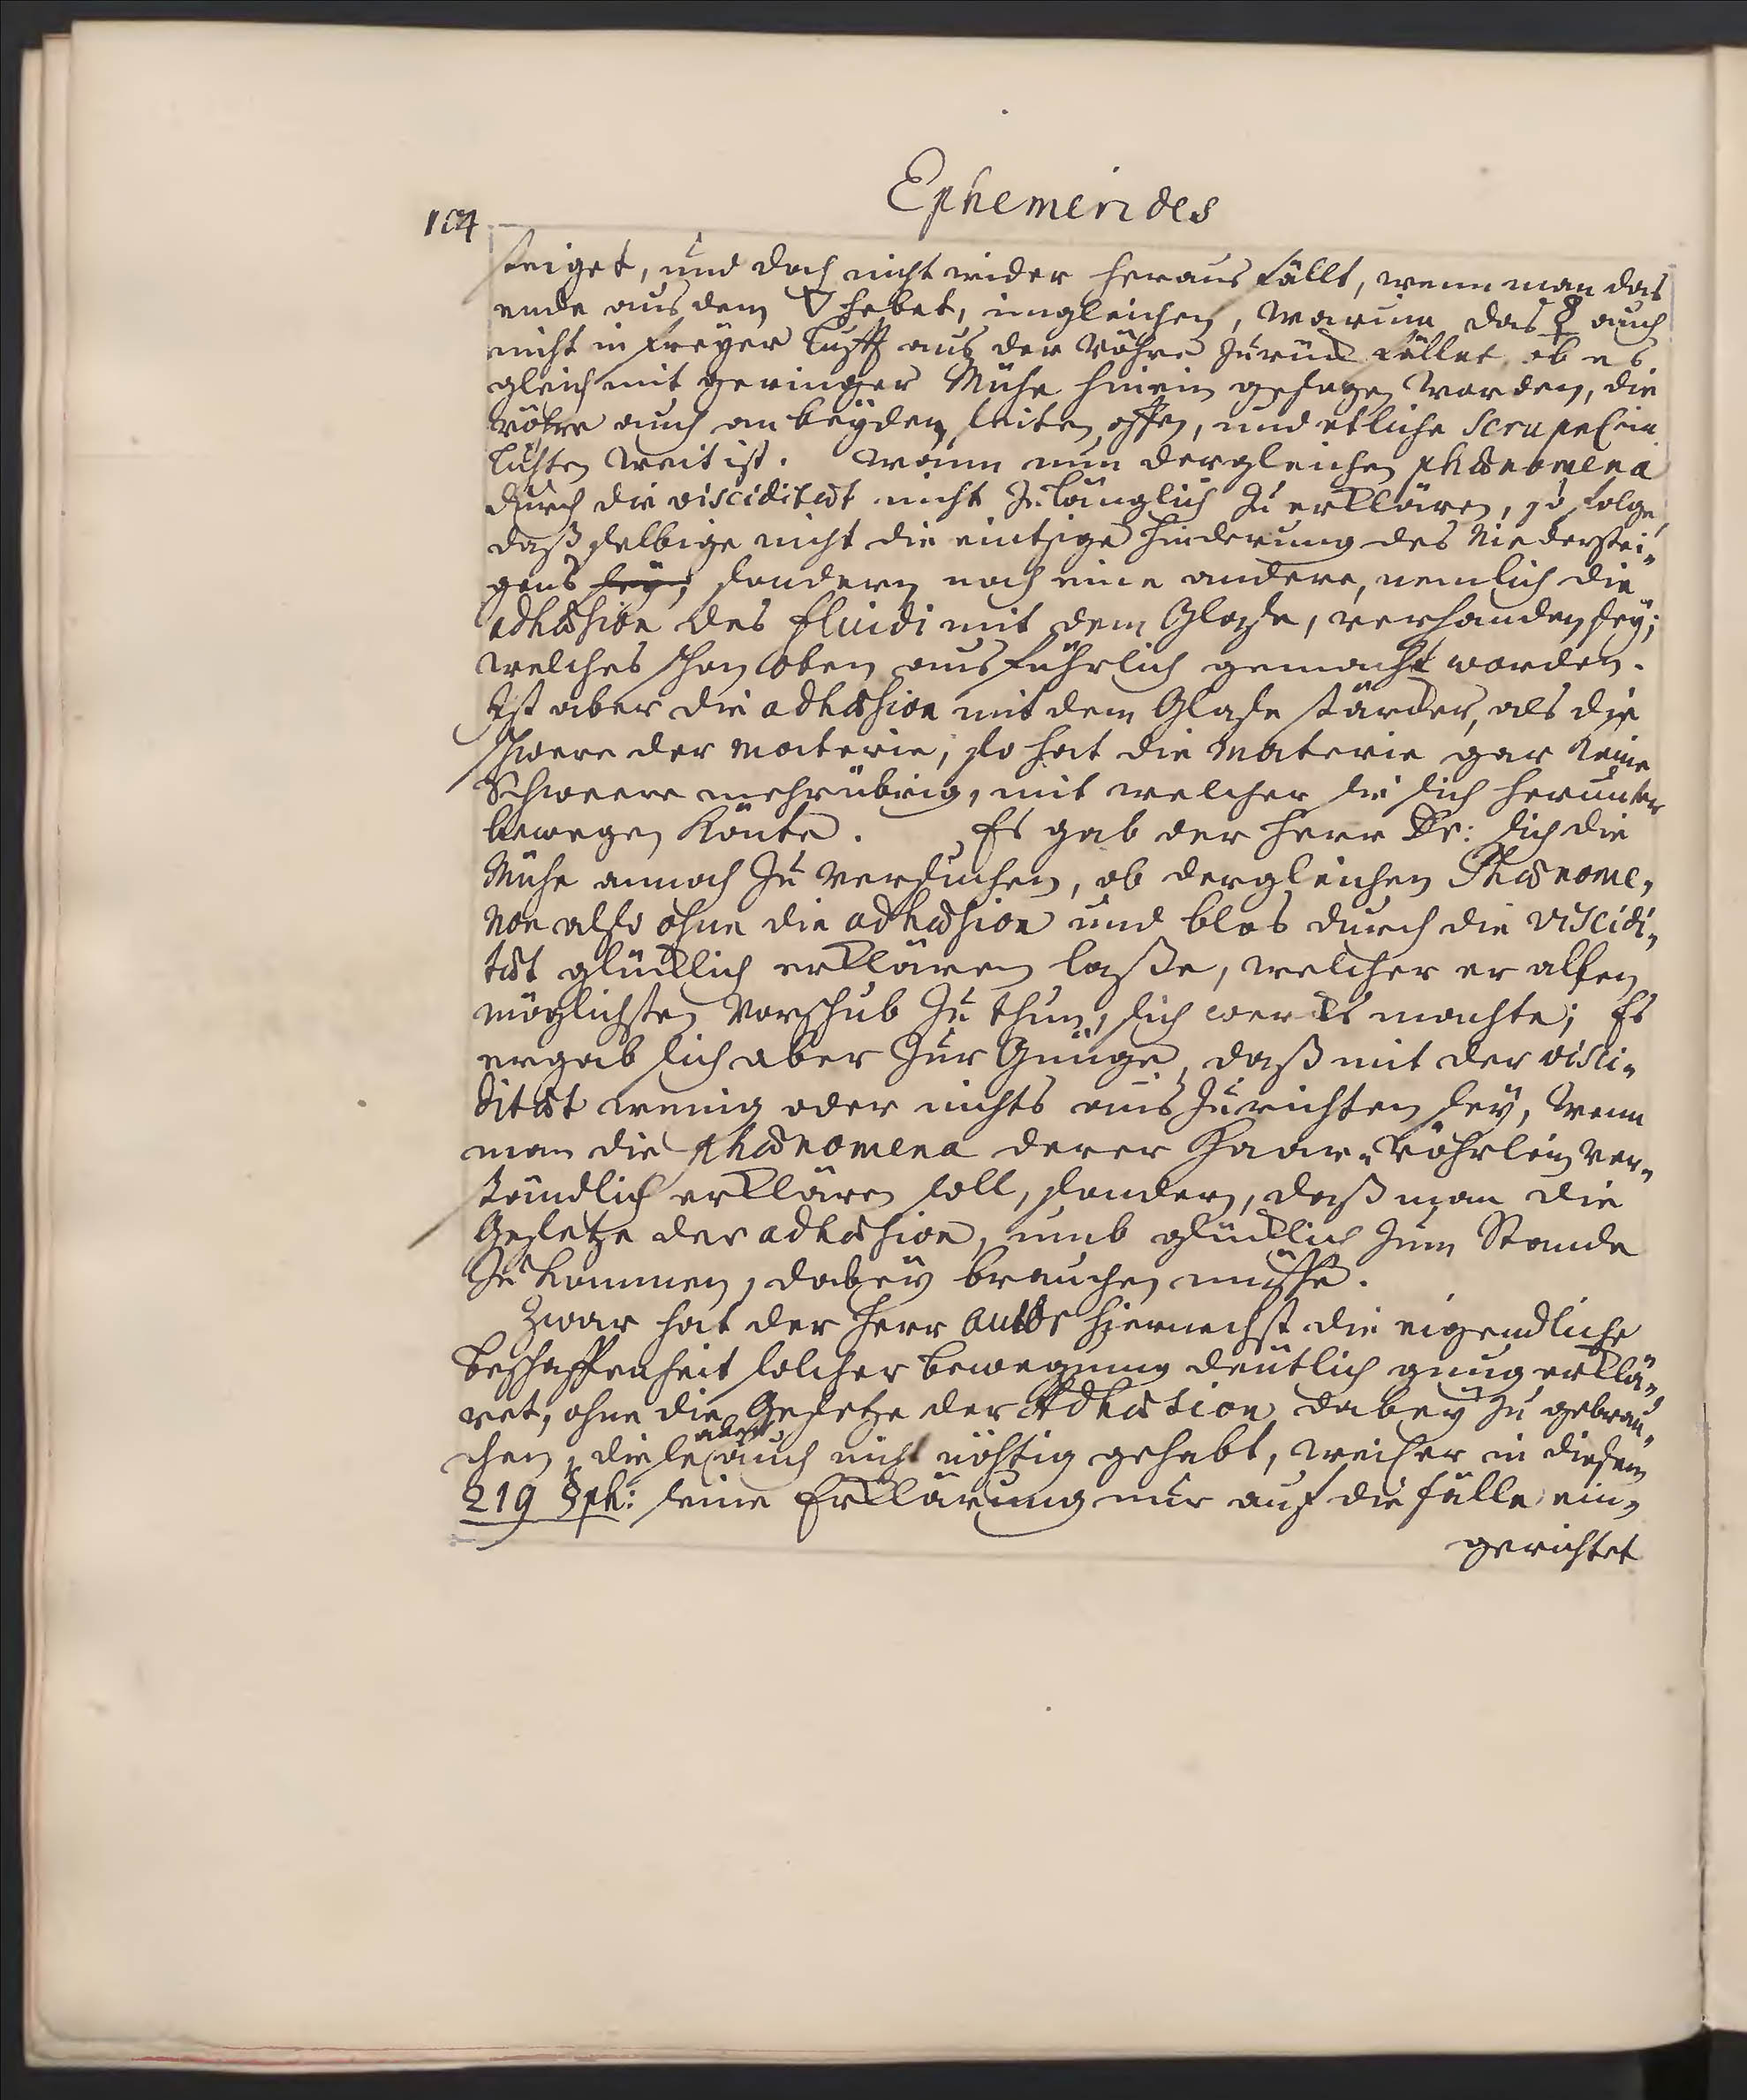 Ephemerides
104
steiget, und doch nicht wider heraus fällt, wenn man das
ende aus dem 🜄 hebet, imgleichen, warum das ☿ auch
nicht in freyer Lufft aus der Röhre zurück fället, ob es
gleich mit geringer Mühe hinein gesogen worden, die
röhre auch an beyden seiten offen, und etliche Scrupel im
lichten weit ist. Wann nun dergleichen phænomena
durch die visciditæt nicht zulänglich zu erklären, so folge,
daß selbige nicht die eintzige Hinderung des Niederstei-
gens sey, sondern noch eine andere, nemlich die
adhæsion des fluidi mit dem Glaße, verhanden sey;
welches schon oben ausführlich gemacht worden.
Ist aber die adhæsion mit dem Glase stärcker, als die
schwere der materie, so hat die Materie gar keine
Schweere mehr übrig, mit welcher sie sich herunter
bewegen könte. Es gab der Herr Dr: sich die
Mühe annoch zu versuchen, ob dergleichen Phænome-
non also ohne die adhæsion und blos durch die viscidi-
tæt glücklich erklären laße, welcher er allen
möglichsten Vorschub zu thun, sich wercks machte; Es
ergab sich aber zur Gnüge, daß mit der visci-
ditæt wenig oder nichts auszurichten sey, wenn
man die phænomena derer Haar-Röhrlein ver-
ständlich erklären soll, sondern, daß man die
Gesetze der adhæsion, umb glücklich zum Stande
zu kommen, dabey brauchen müsse.
Zwar hat der Herr autor hiernechst die eigendliche
Beschaffenheit solcher bewegung deutlich gnug erklä-
ret, ohne die Gesetze der Adhæsion dabey zu gebrau-
chen, diese aber auch nicht nöhtig gehabt, weil er in diesem
219 §ph: seine Erklärung nur auf die fälle ein-
gerichtet